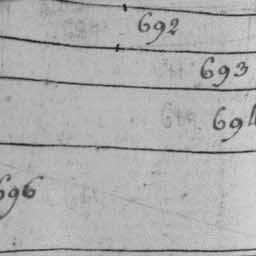 692
693
694
696